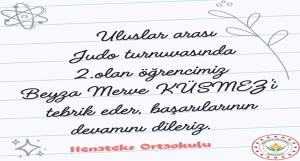 Uluslar arası
Judo turnuvasında
2.olan öğrencimiz
Beyza Merve KÜSMEZ'i
tebrik eder, başarılarının
devamını dileriz.
Henateks Ortaokulu